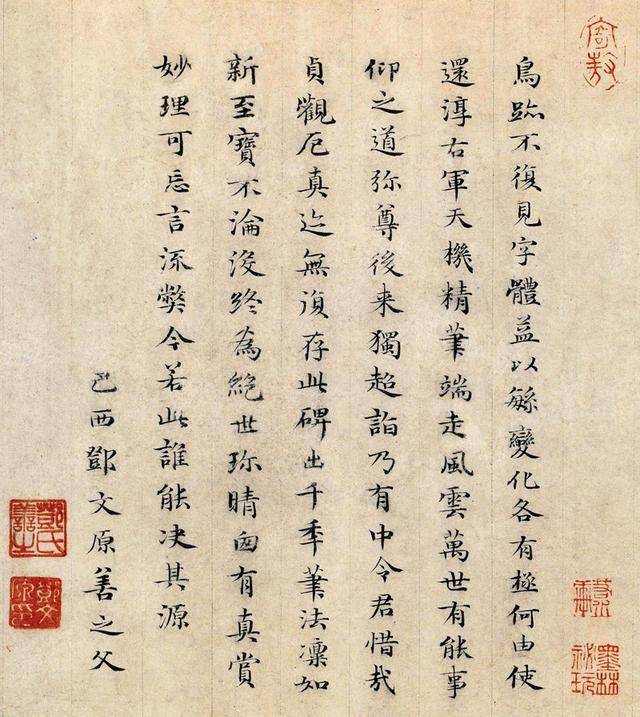 鳥跡不復見字體益以緐變化各有極何由使
還淳右軍天機精筆端走風雲萬世有能事
仰之道弥尊後来獨超詣乃有中令君惜哉
貞觀厄真迹無復存此碑出千年筆法凜如
新至寶不淪没終為絶世珎晴囱有真賞
妙理可忘言流弊今若此誰能决其源
己酉鄧文原善之父
鄧氏善之
墨林秘玩